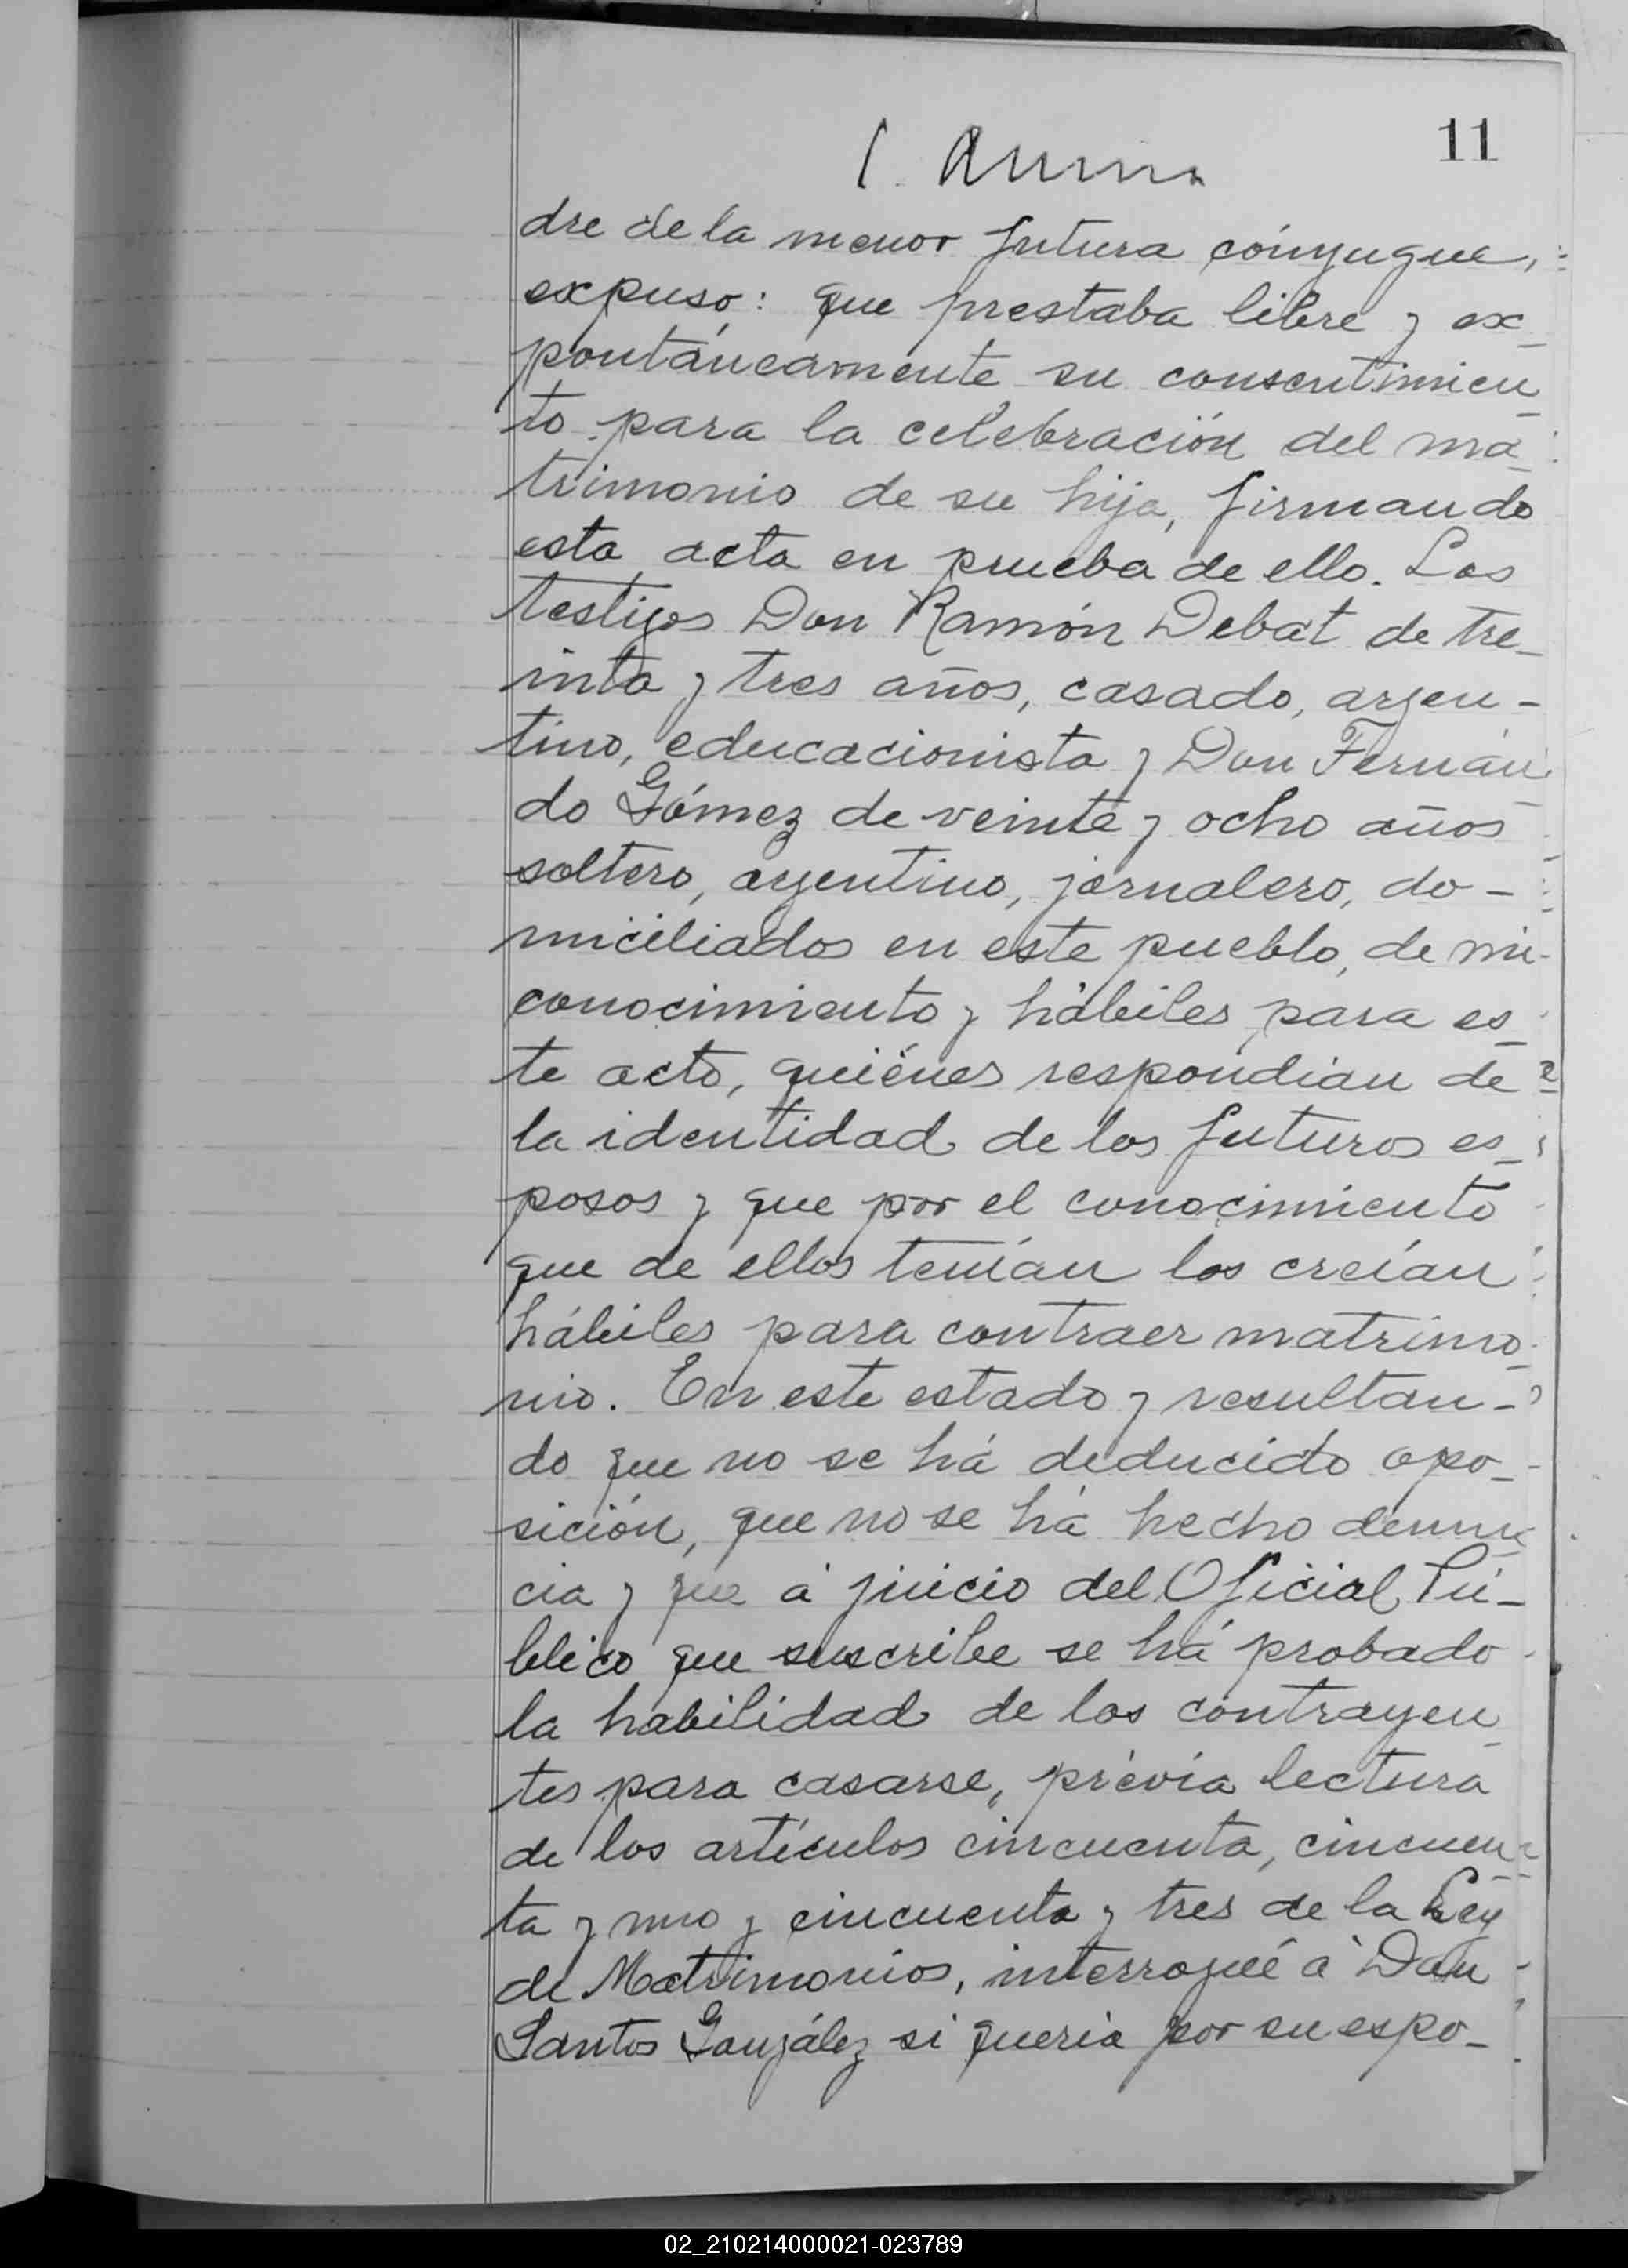 11
dre de la menor futura cónyugue,
expuso: que prestaba libre y ex_
pontáneamente su consentimien_
to para la celebración del ma_
trimonio de su hija, firmando
esta acta en prueba de ello. Los
testigos Don Ramón Debat de tre_
inta y tres años, casado, argen-
tino, educacionista y Don Fernán_
do Gómez de veinte y ocho años
soltero, argentino, jornalero, do-
miciliados en este pueblo, de mi
conocimiento y hábiles para es_
te acto, quiénes respondían de
la identidad de los futuros es_
posos y que por el conocimiento
que de ellos tenían los creían
hábiles para contraer matrimo_
nio. En este estado y resultan-
do que no se há deducido opo_
sición, que no se há hecho denun_
cia y que á juicio del Oficial Pú_
blico que suscribe se há probado
la habilidad de los contrayen_
tes para casarse, prévia lectura
de los artículos cincuenta, cincuen_
ta y uno y cincuenta y tres de la Ley
de Matrimonios, interrogué á Don
Santos González si queria por su espo_
02_210214000021-023789